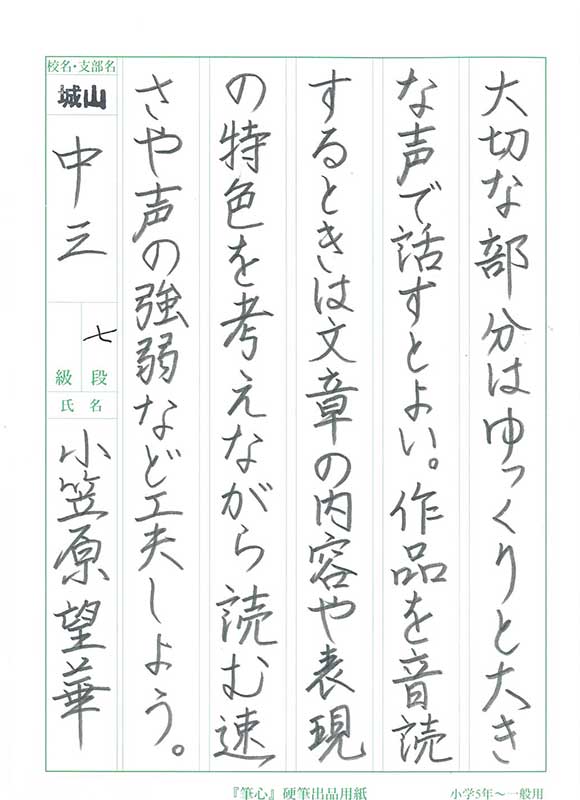 大切な部分はゆっくりと大き
な声で話すとよい。作品を音読
するときは文章の内容や表現
の特色を考えながら読む速
さや声の強弱など工夫しよう。
校名・支部名
城山
中三
七
級 段
氏名
小笠原望華
『筆心』硬筆出品用紙
小学5年～一般用